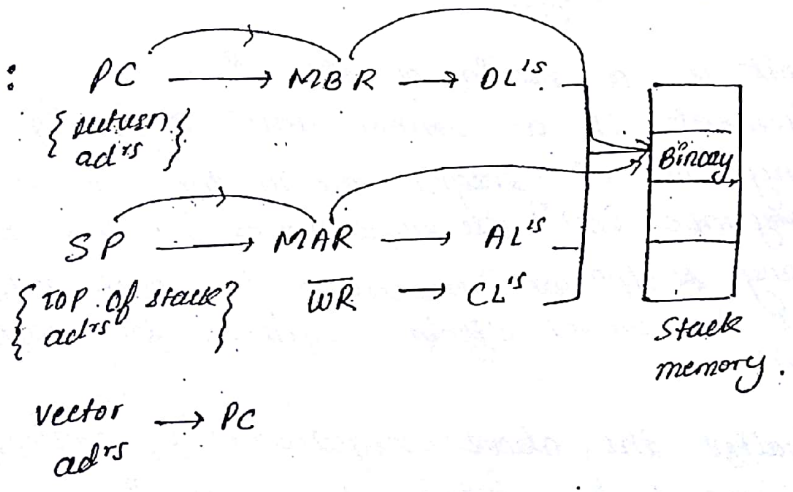 : PC → MBR → DL'S
{ return adrs }
Binary
SP → MAR → AL'S
{ TOP of stack adrs }
WR → CL'S
Stack memory.
vector adrs → PC